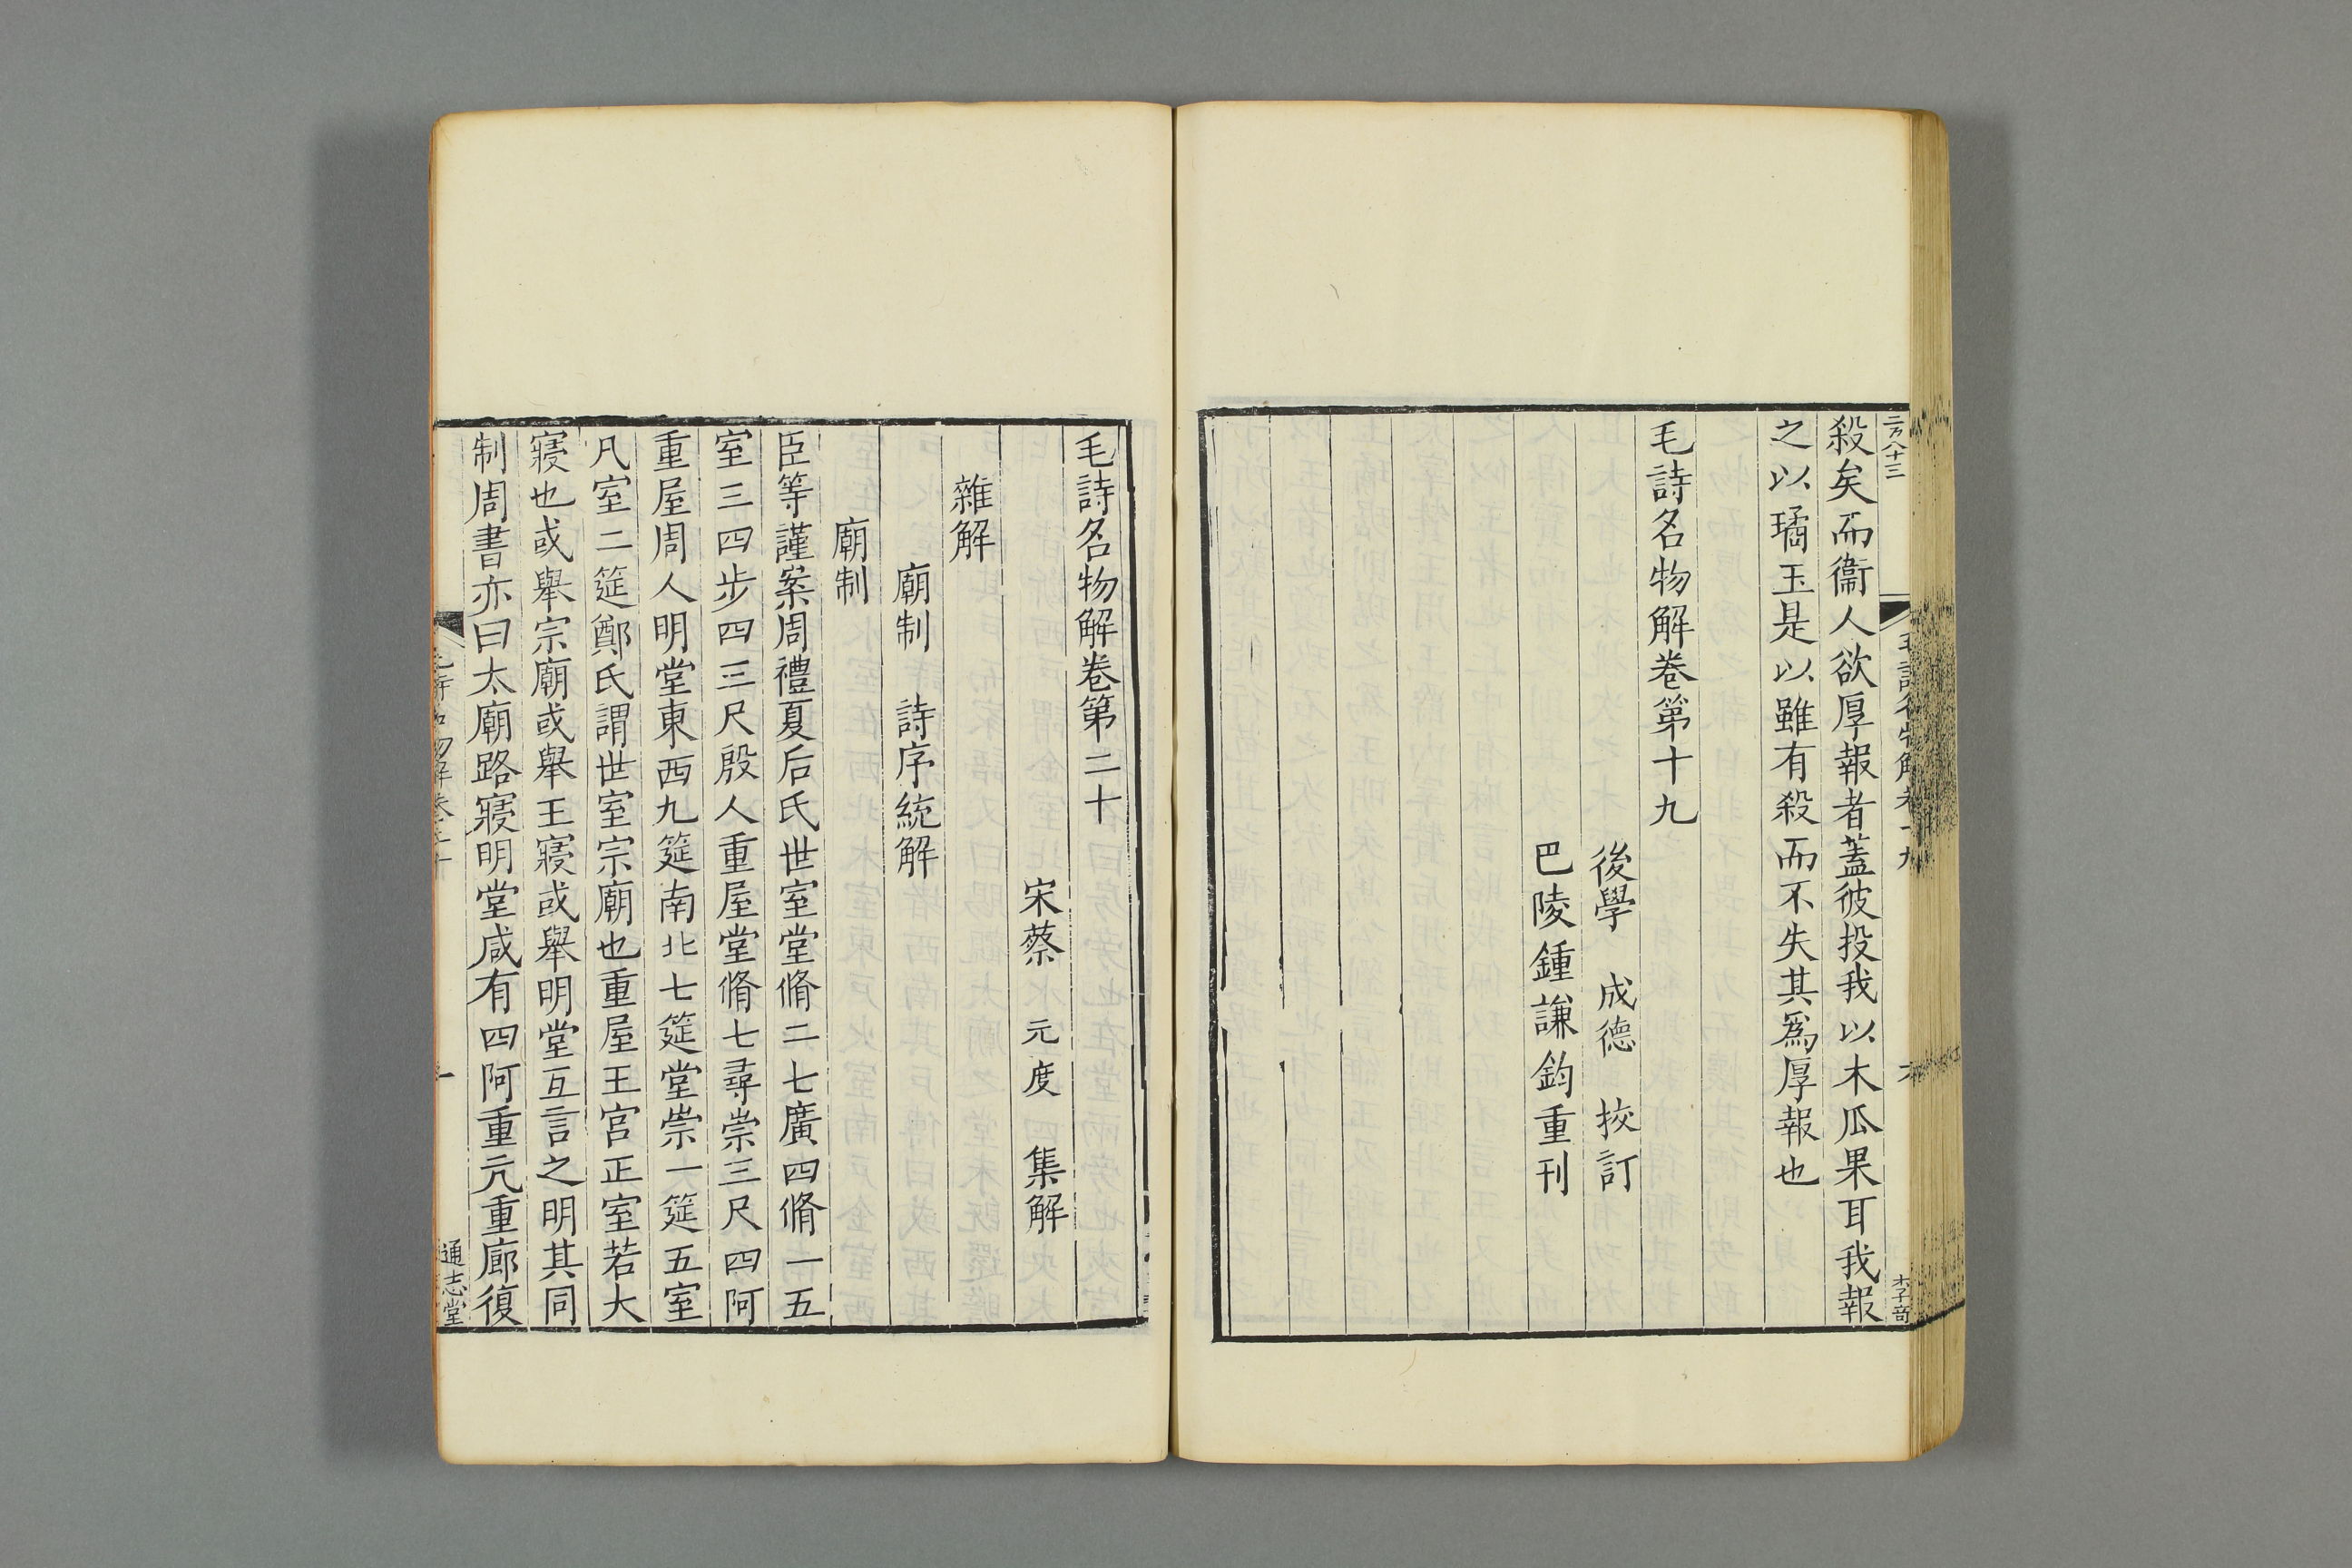 殺矣而衞人欲厚報者蓋彼投我以木瓜果耳我報
之以璚玉是以雖有殺而不失其爲厚報也
毛詩名物解卷第十九
後學 成德 挍訂
巴陵鍾謙鈞重刊
毛詩名物解卷第二十
宋蔡 元度 集解
雜解
廟制 詩序統解
廟制
臣等謹案周禮夏后氏世室堂脩二七廣四脩一五
室三四步四三尺殷人重屋堂脩七尋崇三尺四阿
重屋周人明堂東西九筵南北七筵堂崇一筵五室
凡室二筵鄭氏謂世室宗廟也重屋王宮正室若大
寢也或舉宗廟或舉王寢或舉明堂互言之明其同
制周書亦曰太廟路寢明堂咸有四阿重亢重廊復
通志堂